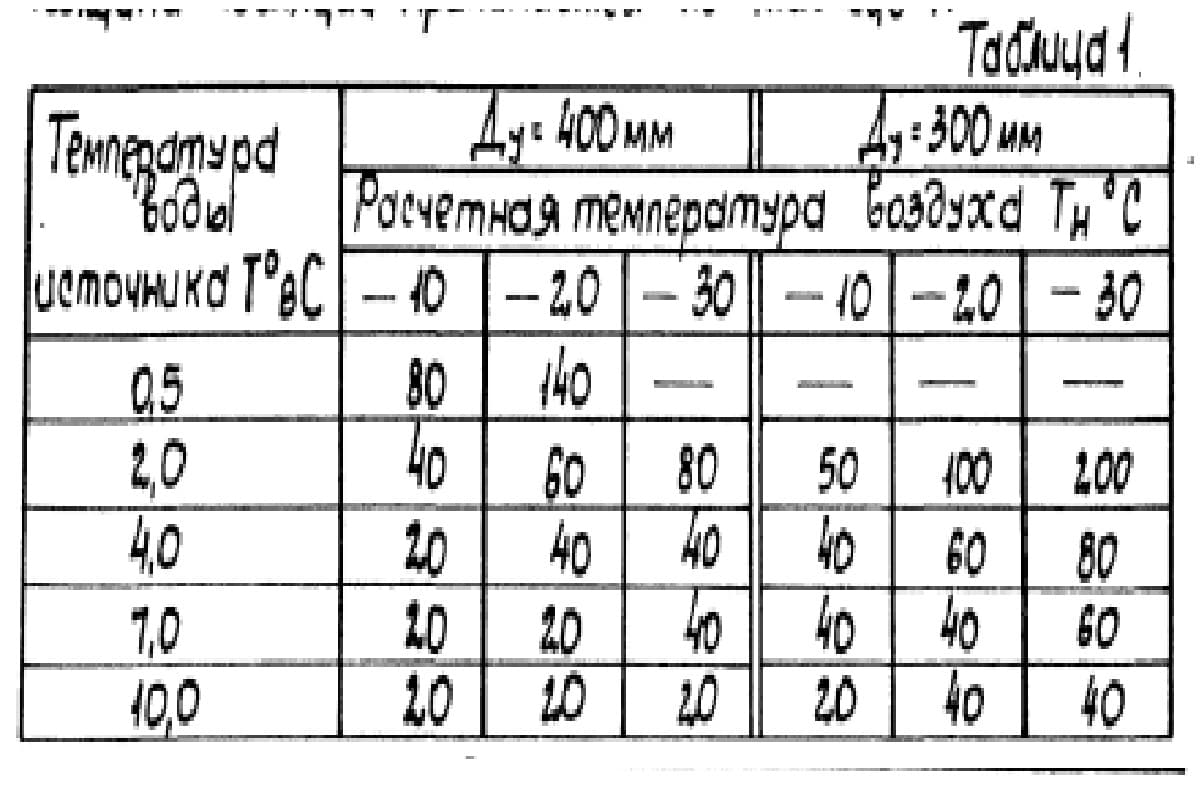 Таблица 1.
Температура воды источника T°вС
Ду= 400 мм Ду= 300 мм
Расчетная температура воздуха Tн°С
— 10 — 20 — 30 — 10 — 20 — 30
0,5 80 140 — — — —
2,0 40 60 80 50 100 200
4,0 20 40 40 40 60 80
7,0 20 20 40 40 40 60
10,0 20 20 20 20 40 40